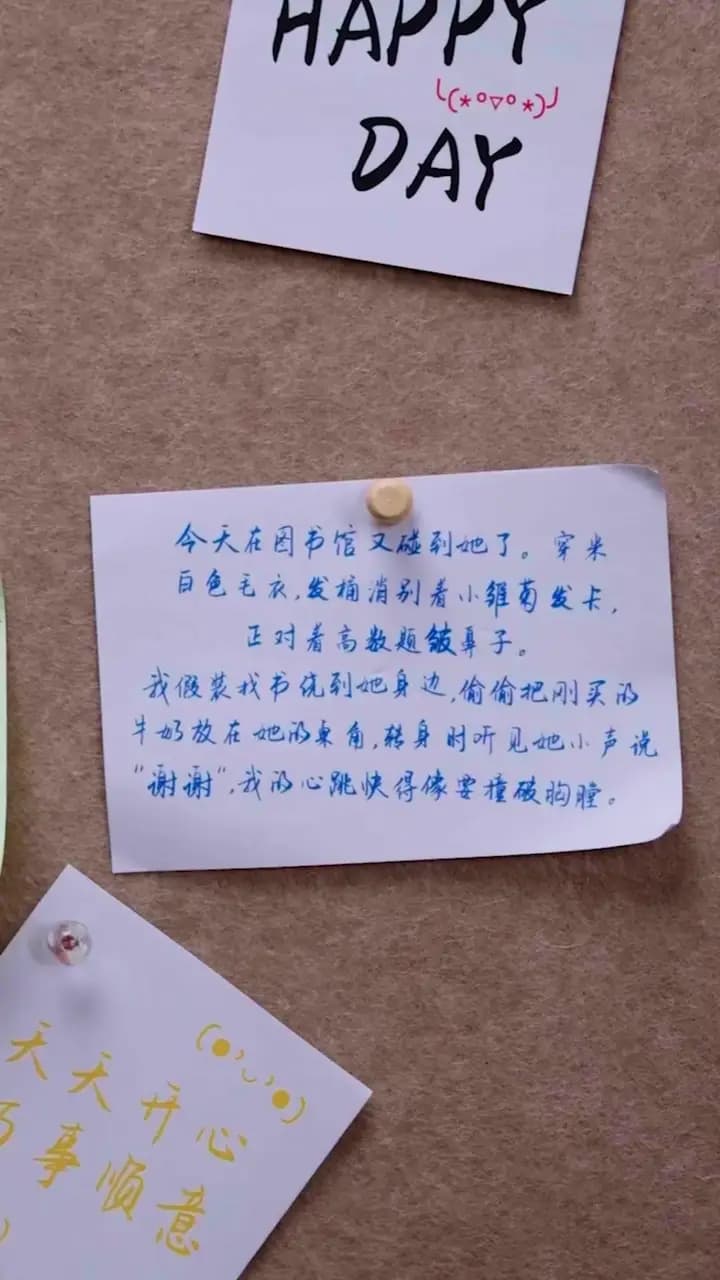 HAPPY
╰(*°▽°*)╯
DAY
今天在图书馆又碰到她了。穿米
白色毛衣,发桶消别着小雏菊发卡,
正对着高数题皱鼻子。
我假装找书绕到她身边,偷偷把刚买的
牛奶放在她的桌角,转身时听见她小声说
"谢谢",我的心跳快得像要撞破胸膛。
(●'◡'●)
天天开心
万事顺意
)